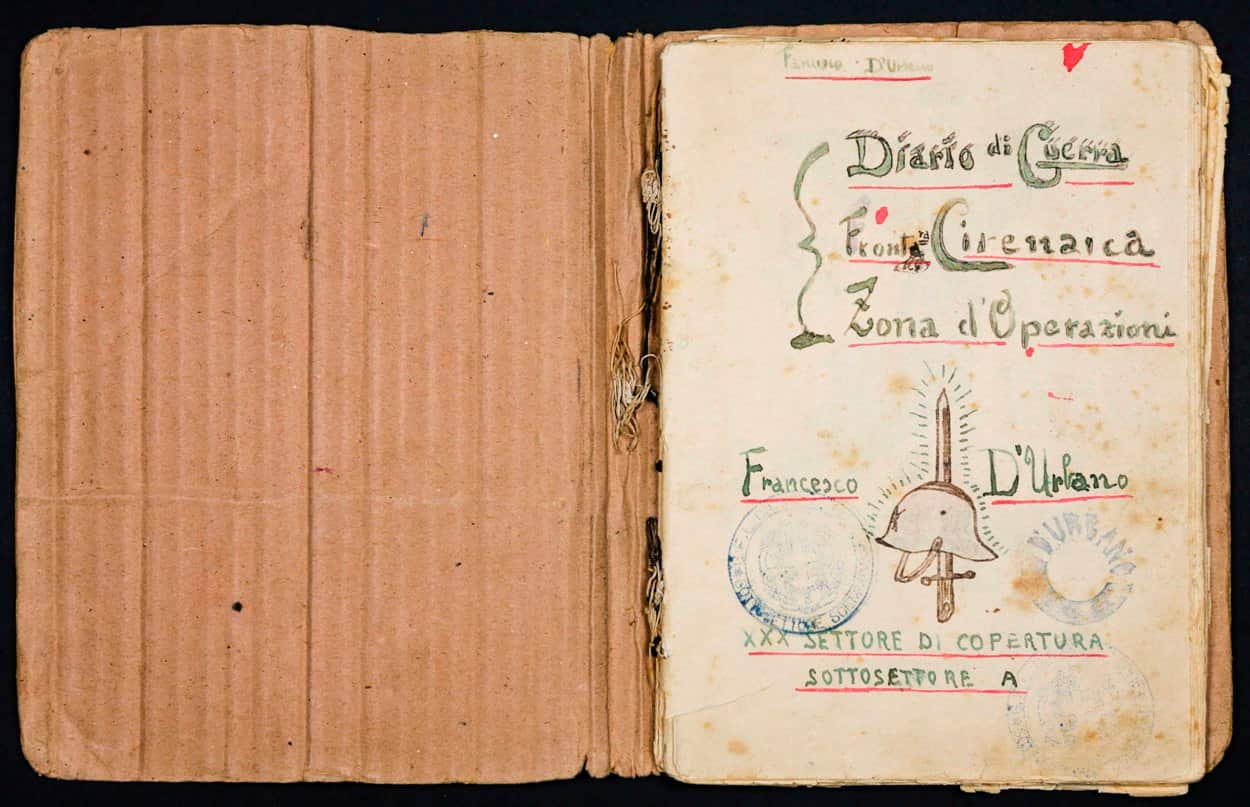 D'Urbano
Diario di Guerra
Cirenaica
Zona d'Operazioni
Francesco D'Urbano
D'URBANO
XXX SETTORE DI COPERTURA
SOTTOSETTORE A